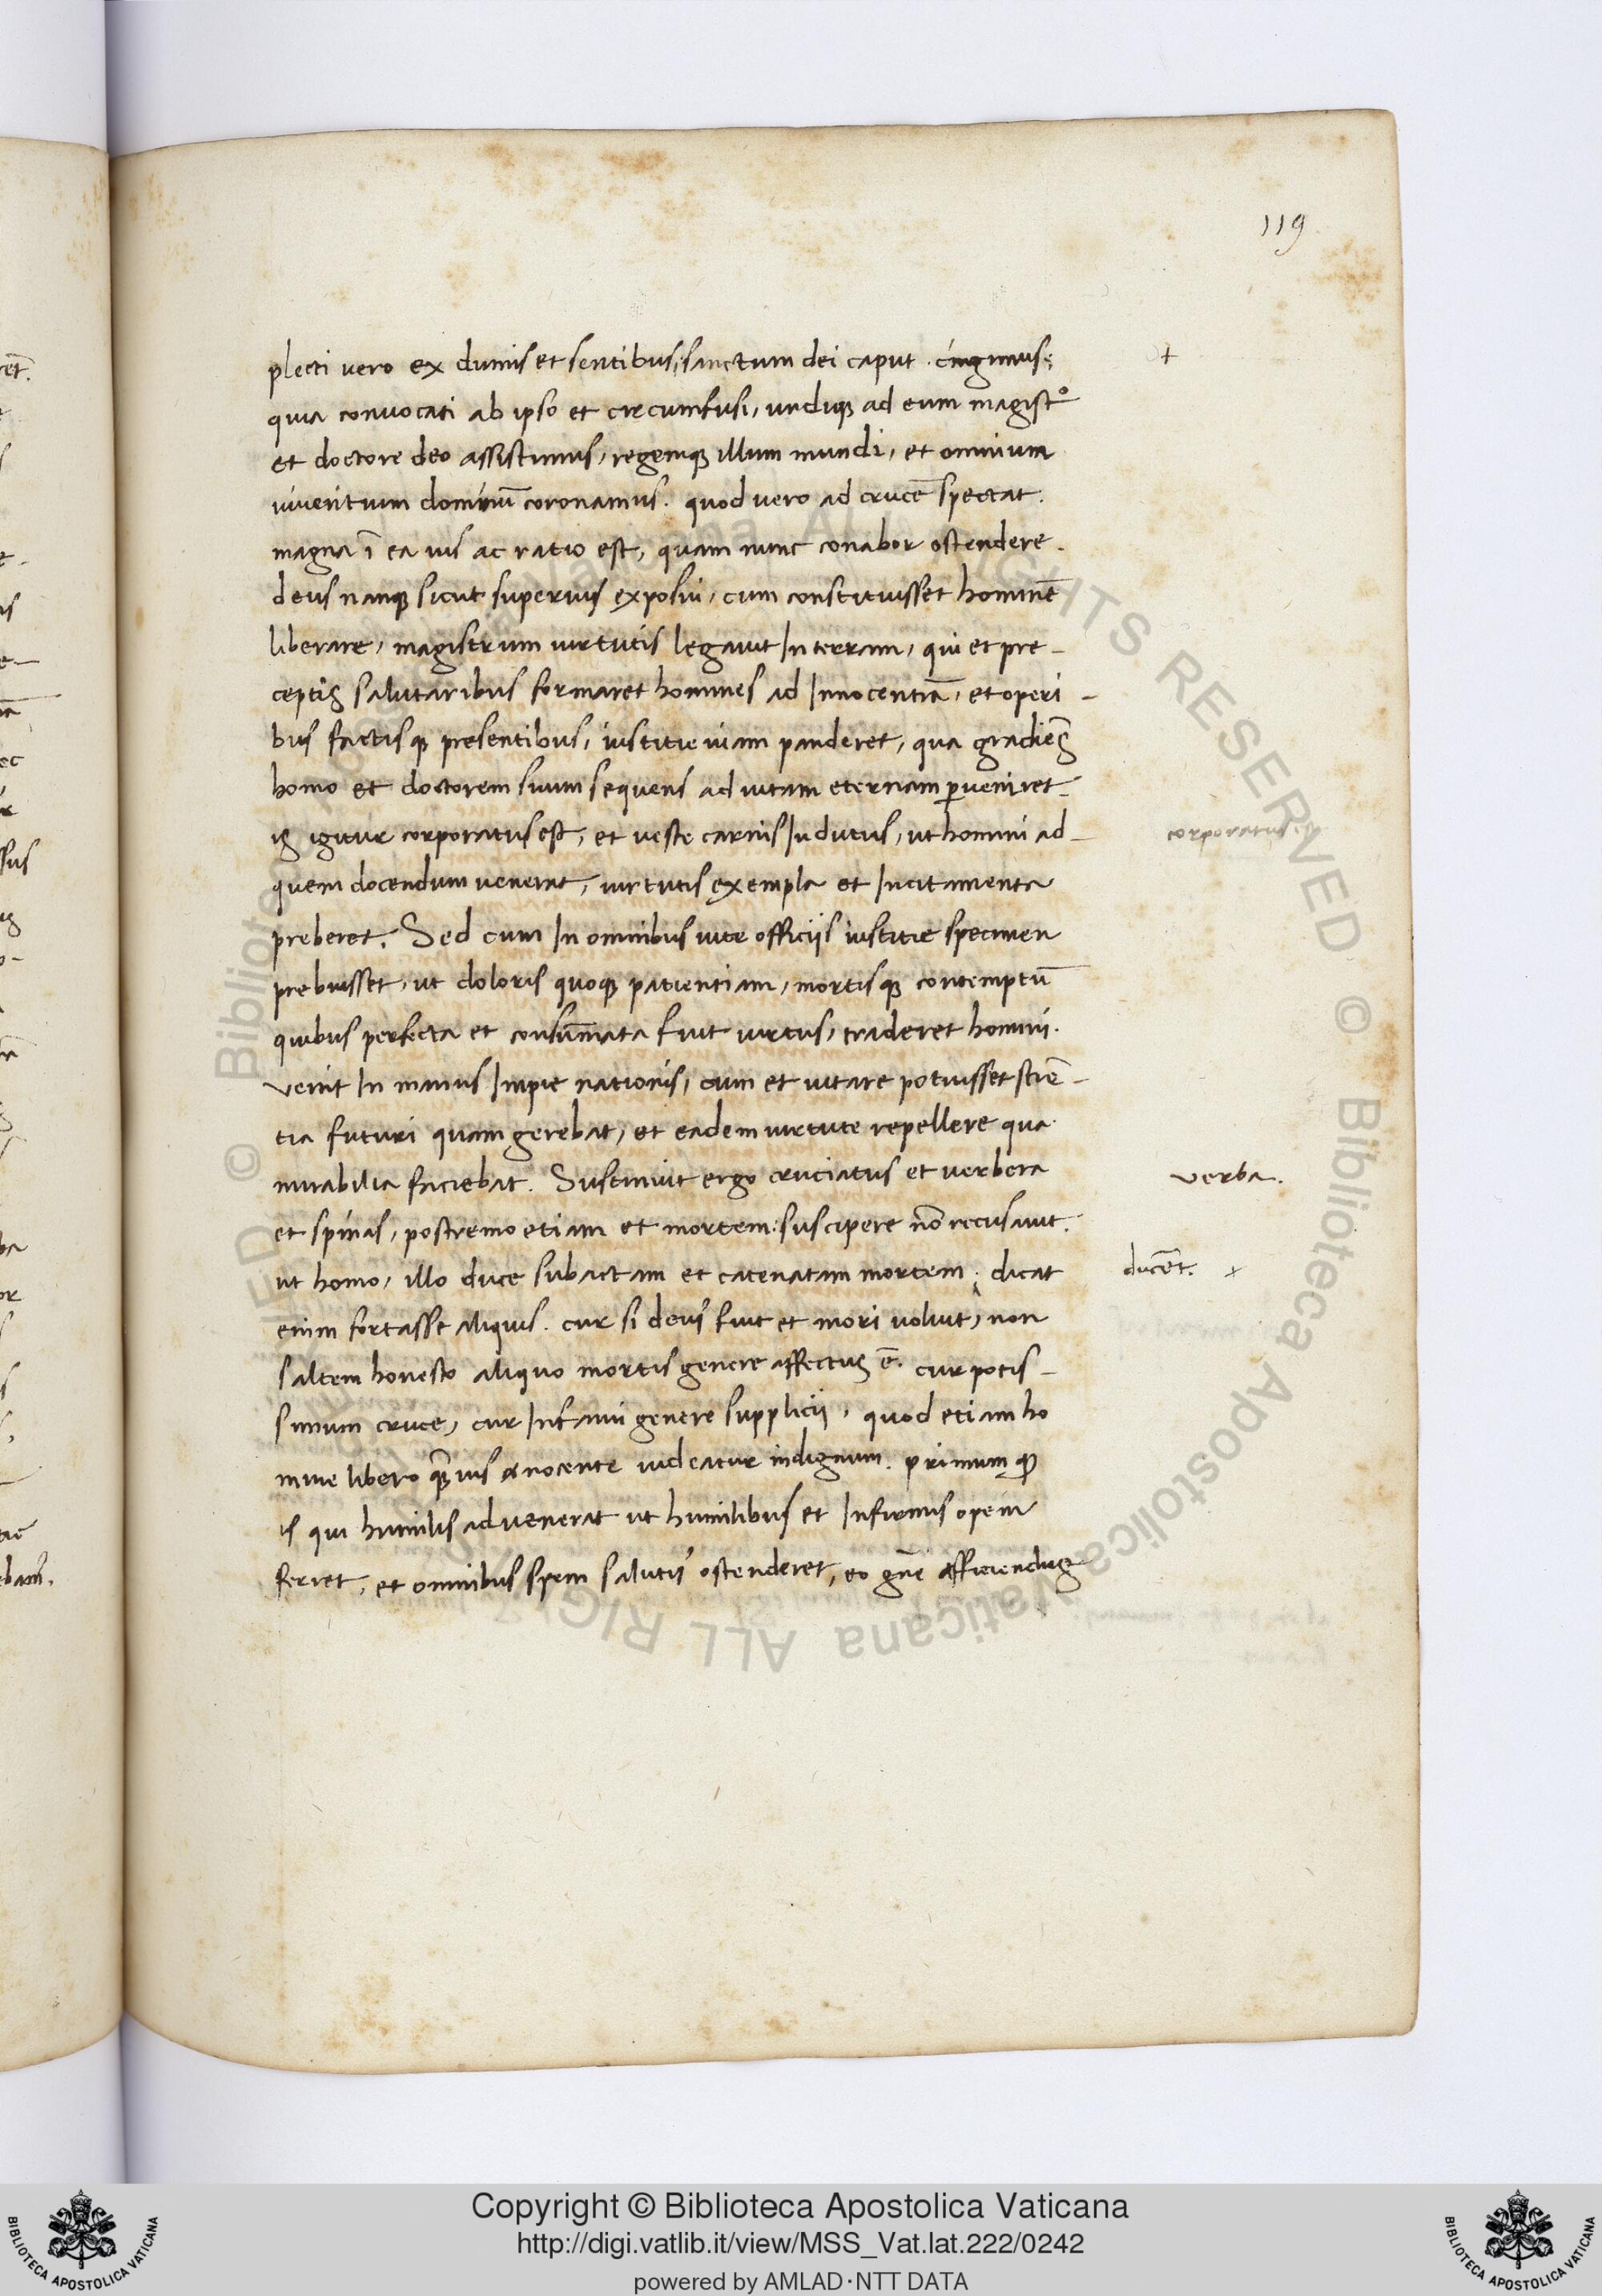 119
plecti vero ex dumis et sentibus, sanctum dei caput. cingimus.
quia convocati ab ipso et circumfusi, undiqꝫ ad eum magistº
et doctore deo assistimus, regemqꝫ illum mundi, et omnium
viventium dominũ coronamus. quod vero ad crucẽ spectat.
magna ĩ ea vis ac ratio est, quam nunc conabor ostendere.
deus nanqꝫ sicut superius exposui, cum constituisset hominẽ
liberare, magistrum virtutis legavit In terram, qui et pre-
ceptis salutaribus formaret homines ad Innocentiã, et operi-
bus factisqꝫ presentibus, iustitie viam panderet, qua gradiẽs
homo et doctorem suum sequens ad vitam eternam ꝑveniret.
is igitur corporatus est, et veste carnis Indutus, ut homini ad-
corporatus.
quem docendum venerat, virtutis exempla et Incitamenta
preberet. Sed cum In omnibus vite officijs iustitie specimen
prebuisset, ut doloris quoqꝫ patientiam, mortisqꝫ contemptũ
quibus perfecta et consum̃ata fuit virtus, traderet homini.
venit In manus Impie nationis, cum et vitare potuisset sciẽ-
tia futuri quam gerebat, et eadem virtute repellere qua
mirabilia faciebat. Sustinuit ergo cruciatus et verbera
verba.
et spinas, postremo etiam et mortem: suscipere nõ recusavit.
ut homo, illo duce subactam et catenatam mortem. dicat
ducẽt. +
enim fortasse aliquis. cur si deus fuit et mori voluit, non
saltem honesto aliquo mortis genere affectus ẽ. cur potis-
simum cruce, cur Infami genere supplicij, quod etiam ho
mine libero qͣ̃vis nocente videatur indignum. primum qꝫ
is qui humilis advenerat ut humilibus et Infirmis opem
ferret, et omnibus spem salutis ostenderet, eo gñe afficiendus
Copyright © Biblioteca Apostolica Vaticana
http://digi.vatlib.it/view/MSS_Vat.lat.222/0242
powered by AMLAD·NTT DATA
BIBLIOTECA APOSTOLICA VATICANA
BIBLIOTECA APOSTOLICA VATICANA